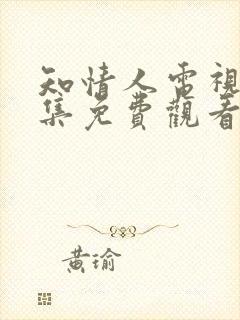 知情人電視
集免費觀看
黃瑜